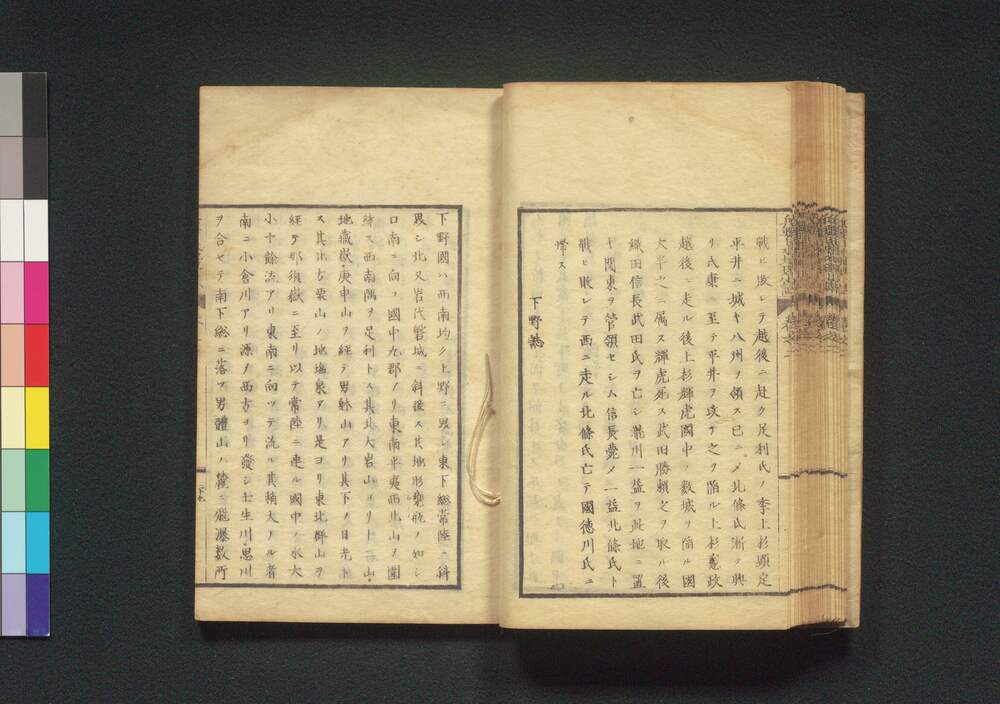 戰ヒ敗レテ越後ニ赴ク足利氏ノ季上杉顯定
平井ニ城キ八州ヲ領ス已ニメ北條氏漸ク興
リ氏康ニ至テ平井ヲ攻テ之ヲ陷ル上杉憲政
越後ニ走ル後上杉輝虎國中ノ數城ヲ陷ル國
大半之ニ属ス輝虎死ス武田勝賴之ヲ取ル後
織田信長武田氏ヲ亡シ瀧川一益ヲ此地ニ置
キ關東ヲ管領セシム信長薨メ一益北條氏ト
戰ヒ敗レテ西ニ走ル北條氏亡テ國德川氏ニ
歸ス
下野誌
下野國ハ西南均ク上野ニ界シ東下總常陸ニ斜
界シ北又岩代磐城ニ斜接ス其地形甕瓶ノ如シ
口南ニ向フ國中九郡アリ東南平夷西北山ヲ圍
繞ス西南隅ヲ足利トス其北大岩山ヨリ十石山
地藏嶽庚申山ヲ經テ男躰山アリ其下ノ日光ト
ス其北古栗山ノ地塩泉アリ是ヨリ東北群山ヲ
經テ那須嶽ニ至リ以テ常陸ニ連ル國中ノ水大
小十餘流アリ東南ニ向ツテ流ル其稍大ナル者
南ニ小倉川アリ源ヲ西方ヨリ發シ壬生川思川
ヲ合セテ南下總ニ落ツ男體山ノ麓ニ飛瀑數所